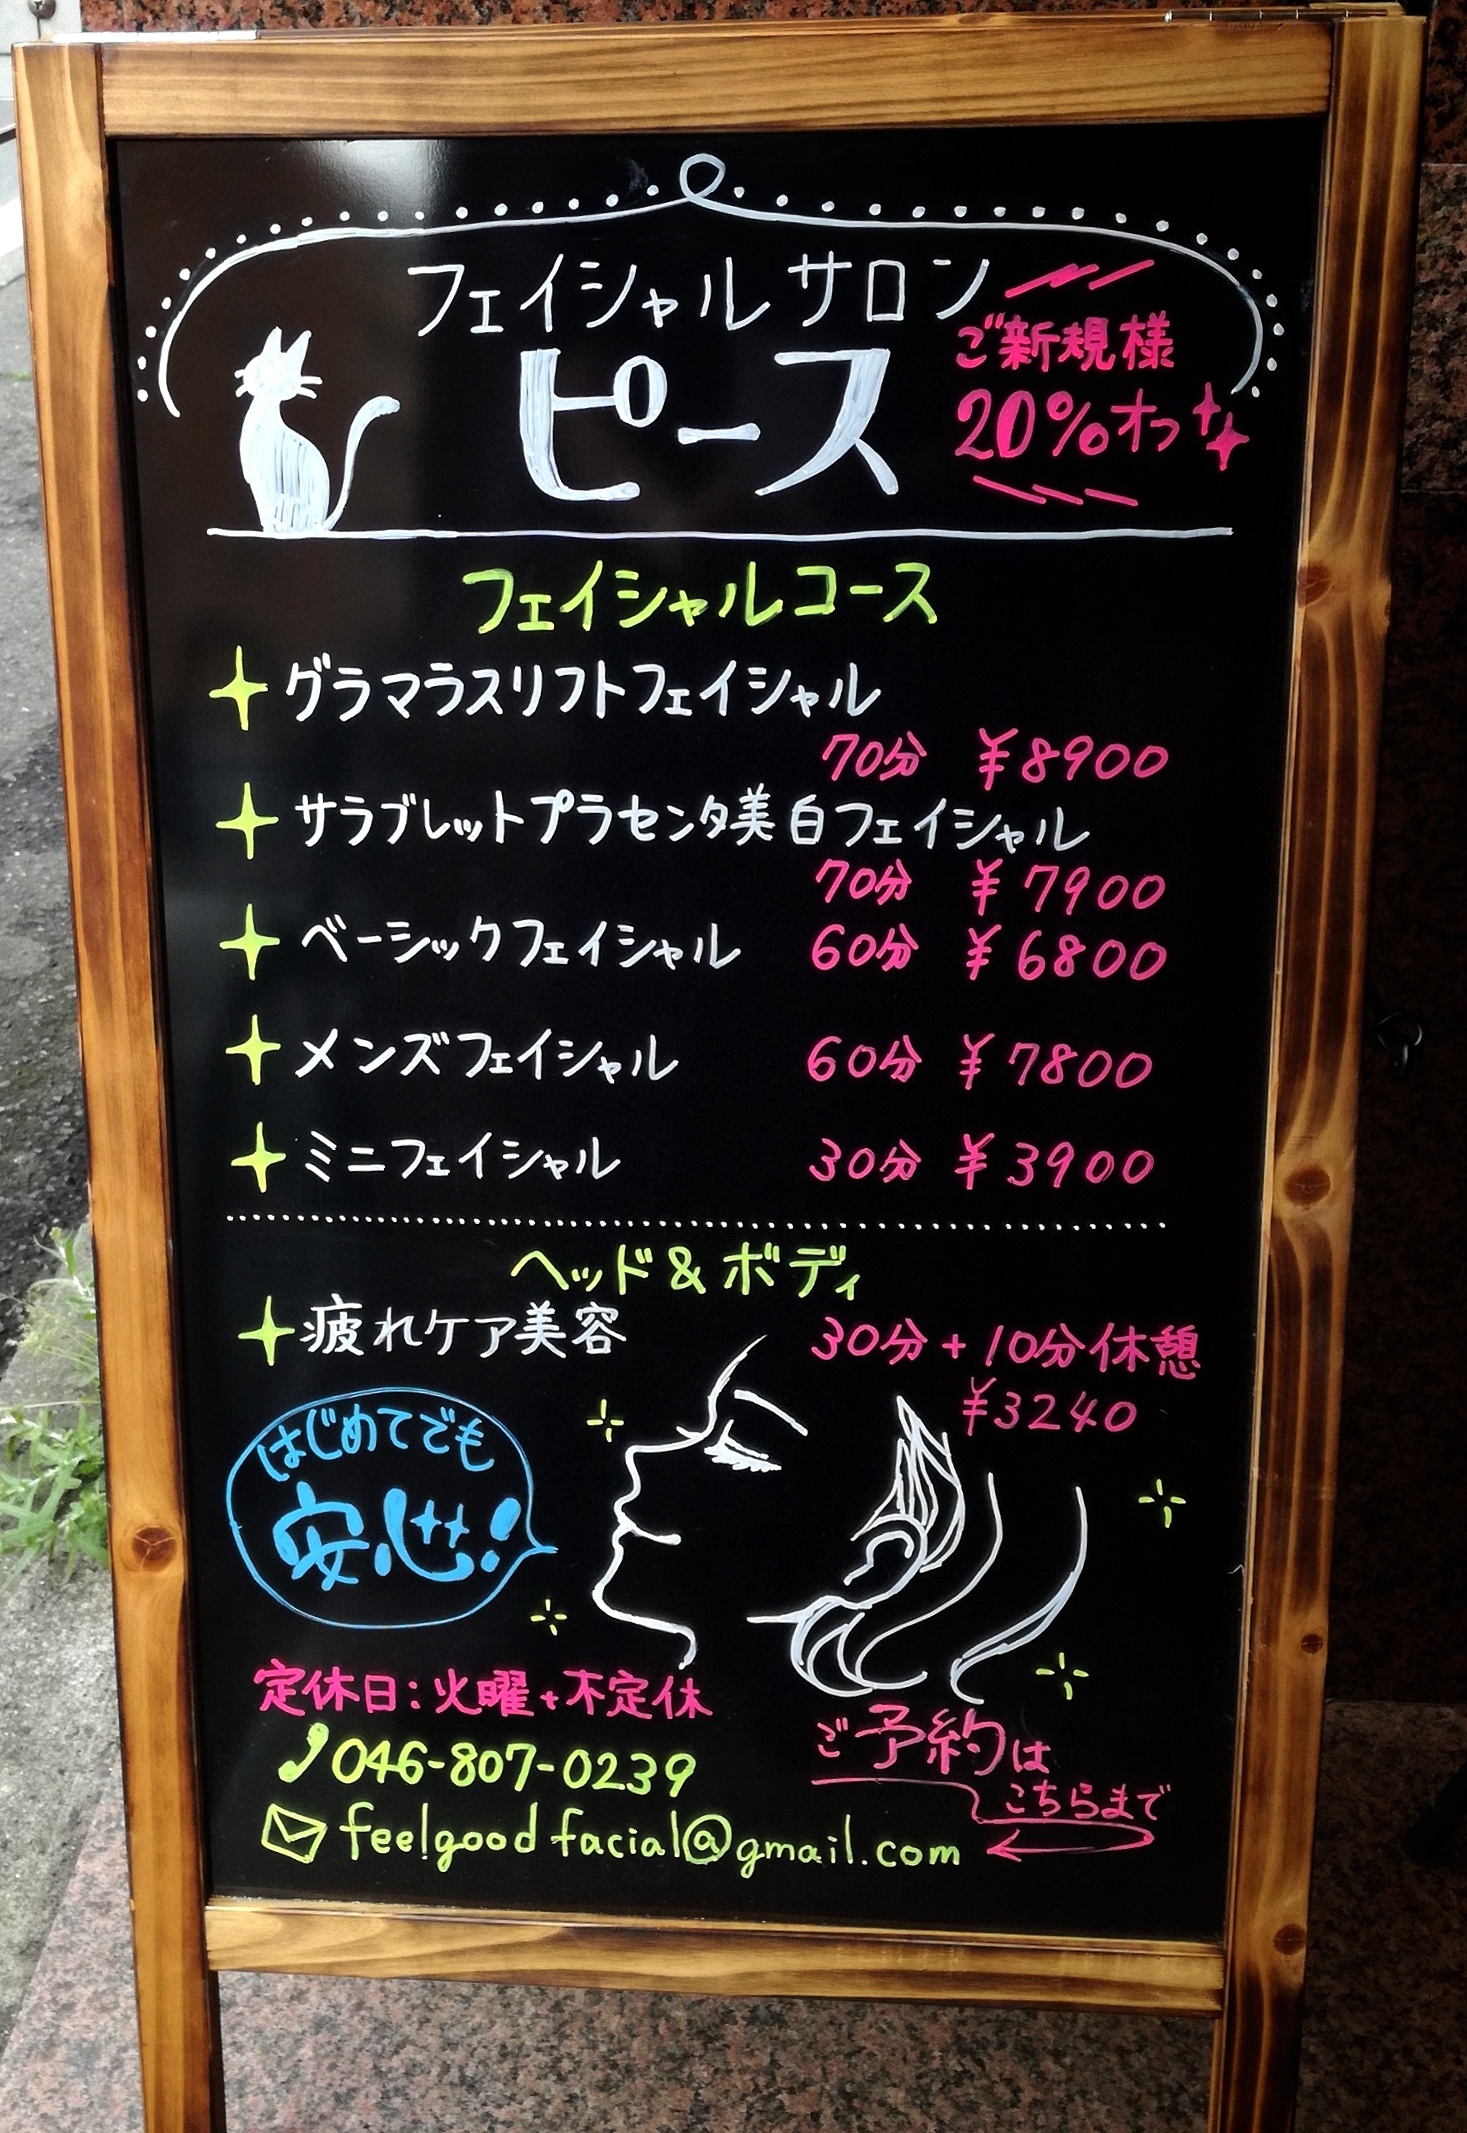 フェイシャルサロン
ピース
ご新規様
20%オフ
フェイシャルコース
グラマラスリフトフェイシャル
70分 ¥8900
サラブレットプラセンタ美白フェイシャル
70分 ¥7900
ベーシックフェイシャル 60分 ¥6800
メンズフェイシャル 60分 ¥7800
ミニフェイシャル 30分 ¥3900
ヘッド&ボディ
疲れケア美容 30分+10分休憩
¥3240
はじめてでも
安心!
定休日:火曜+不定休
046-807-0239
ご予約は
こちらまで
feelgoodfacial@gmail.com